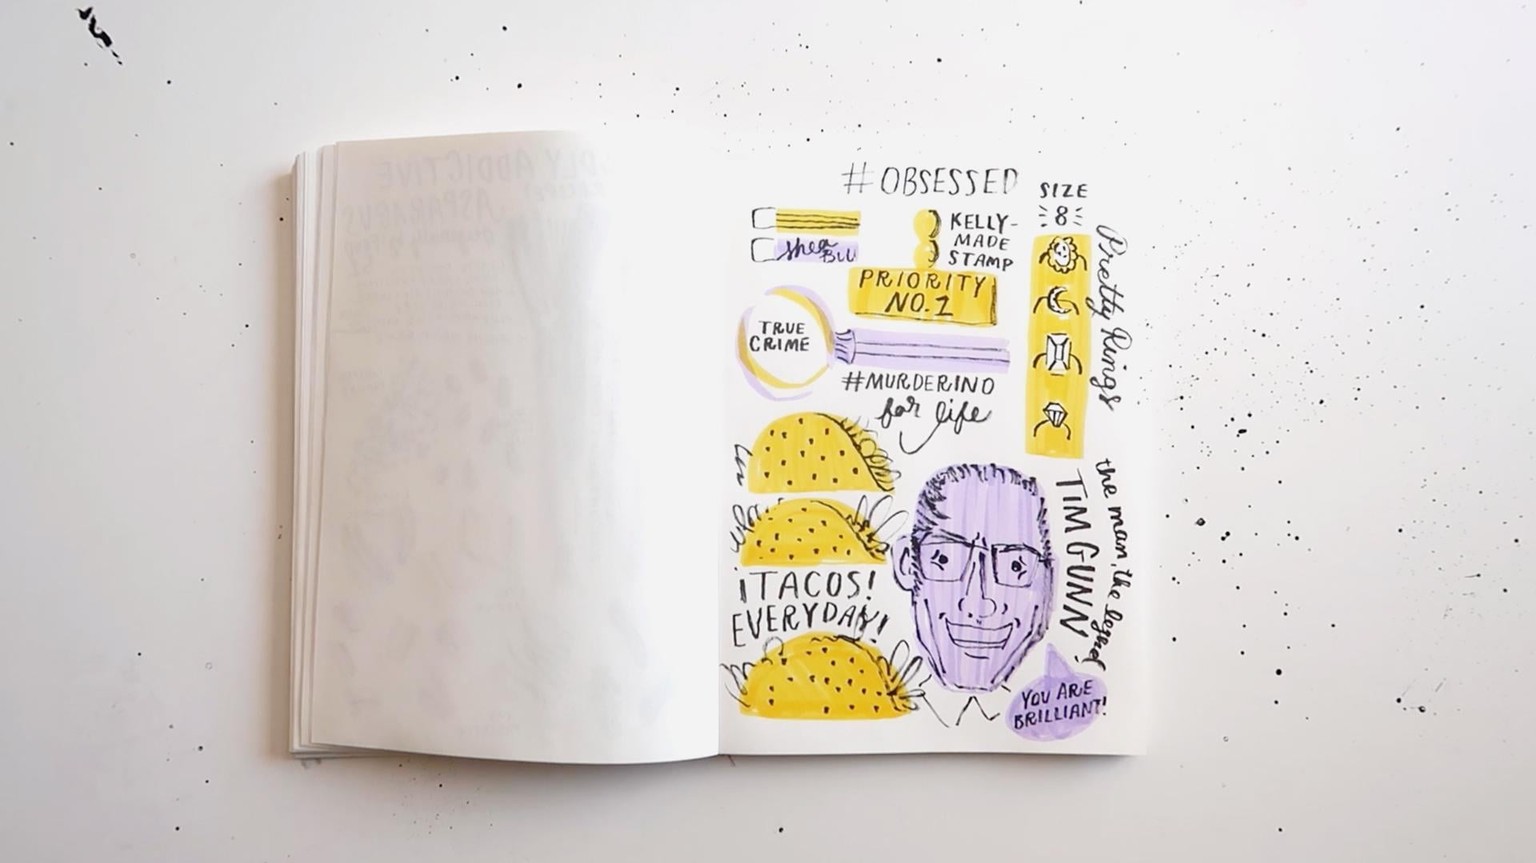 #OBSESSED
SIZE
8
KELLY-
MADE
STAMP
PRIORITY
NO.1
Pretty Rings
TRUE
CRIME
#MURDERINO
for life
the man, the legend
TIM GUNN
¡TACOS!
EVERYDAY!
YOU ARE
BRILLIANT!